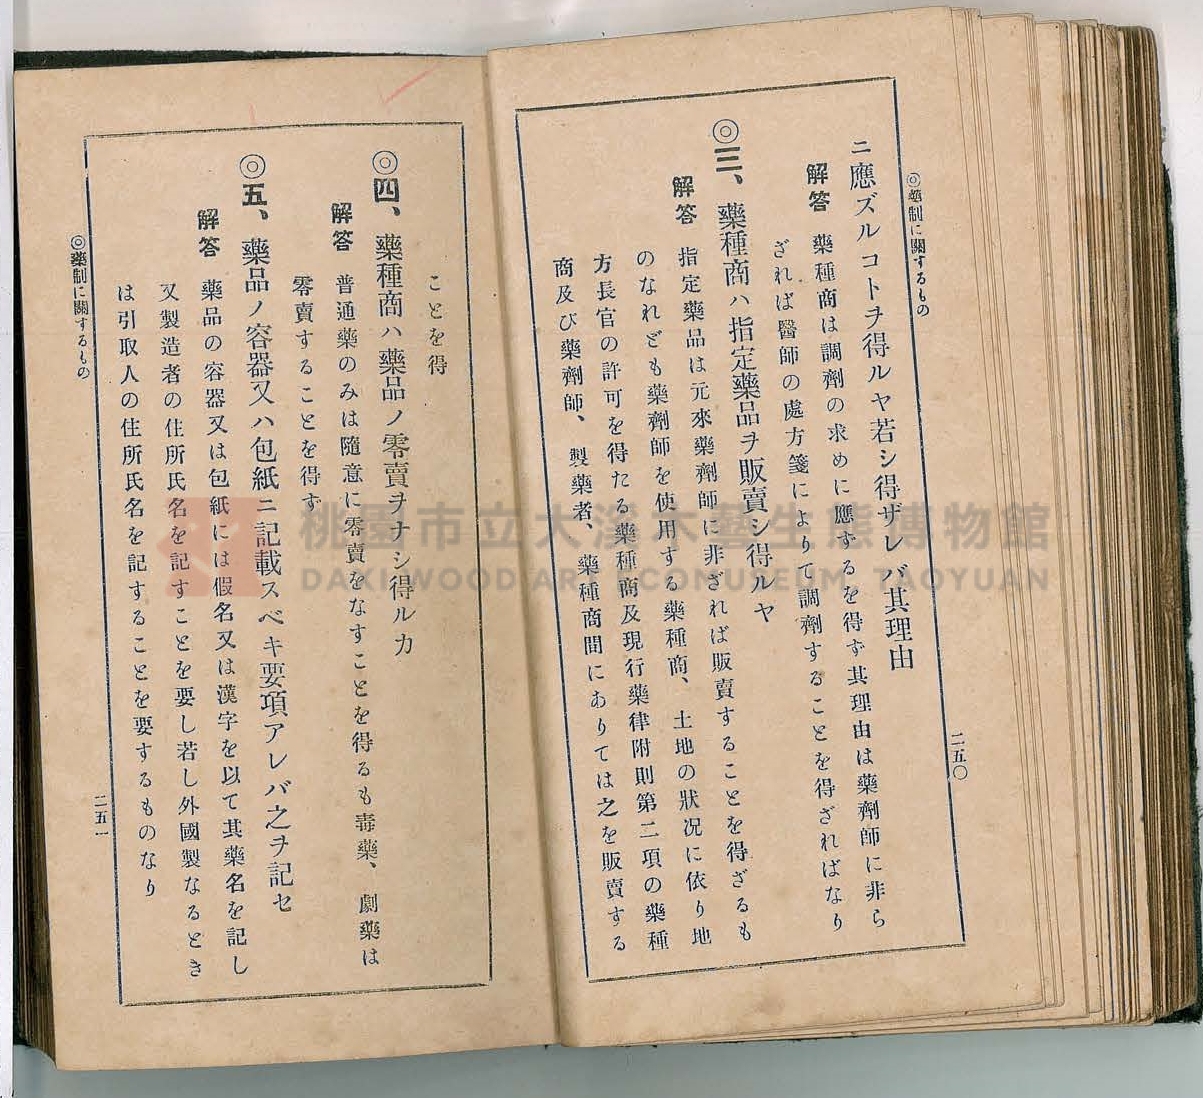 ◎藥制に關するもの
二五〇
ニ應ズルコトヲ得ルヤ若シ得ザレバ其理由
解答 藥種商は調劑の求めに應ずるを得ず其理由は藥劑師に非ら
ざれば醫師の處方箋によりて調劑することを得ざればなり
◎三、藥種商ハ指定藥品ヲ販賣シ得ルヤ
解答 指定藥品は元來藥劑師に非ざれば販賣することを得ざるも
のなれども藥劑師を使用する藥種商、土地の狀况に依り地
方長官の許可を得たる藥種商及現行藥律附則第二項の藥種
商及び藥劑師、製藥者、藥種商間にありては之を販賣する
ことを得
◎四、藥種商ハ藥品ノ零賣ヲナシ得ルカ
解答 普通藥のみは隨意に零賣をなすことを得るも毒藥、劇藥は
零賣することを得ず
◎五、藥品ノ容器又ハ包紙ニ記載スベキ要項アレバ之ヲ記セ
解答 藥品の容器又は包紙には假名又は漢字を以て其藥名を記し
又製造者の住所氏名を記すことを要し若し外國製なるとき
は引取人の住所氏名を記することを要するものなり
◎藥制に關するもの
二五一
桃園市立大溪木藝生態博物館
DAXI WOOD ART ECOMUSEUM, TAOYUAN